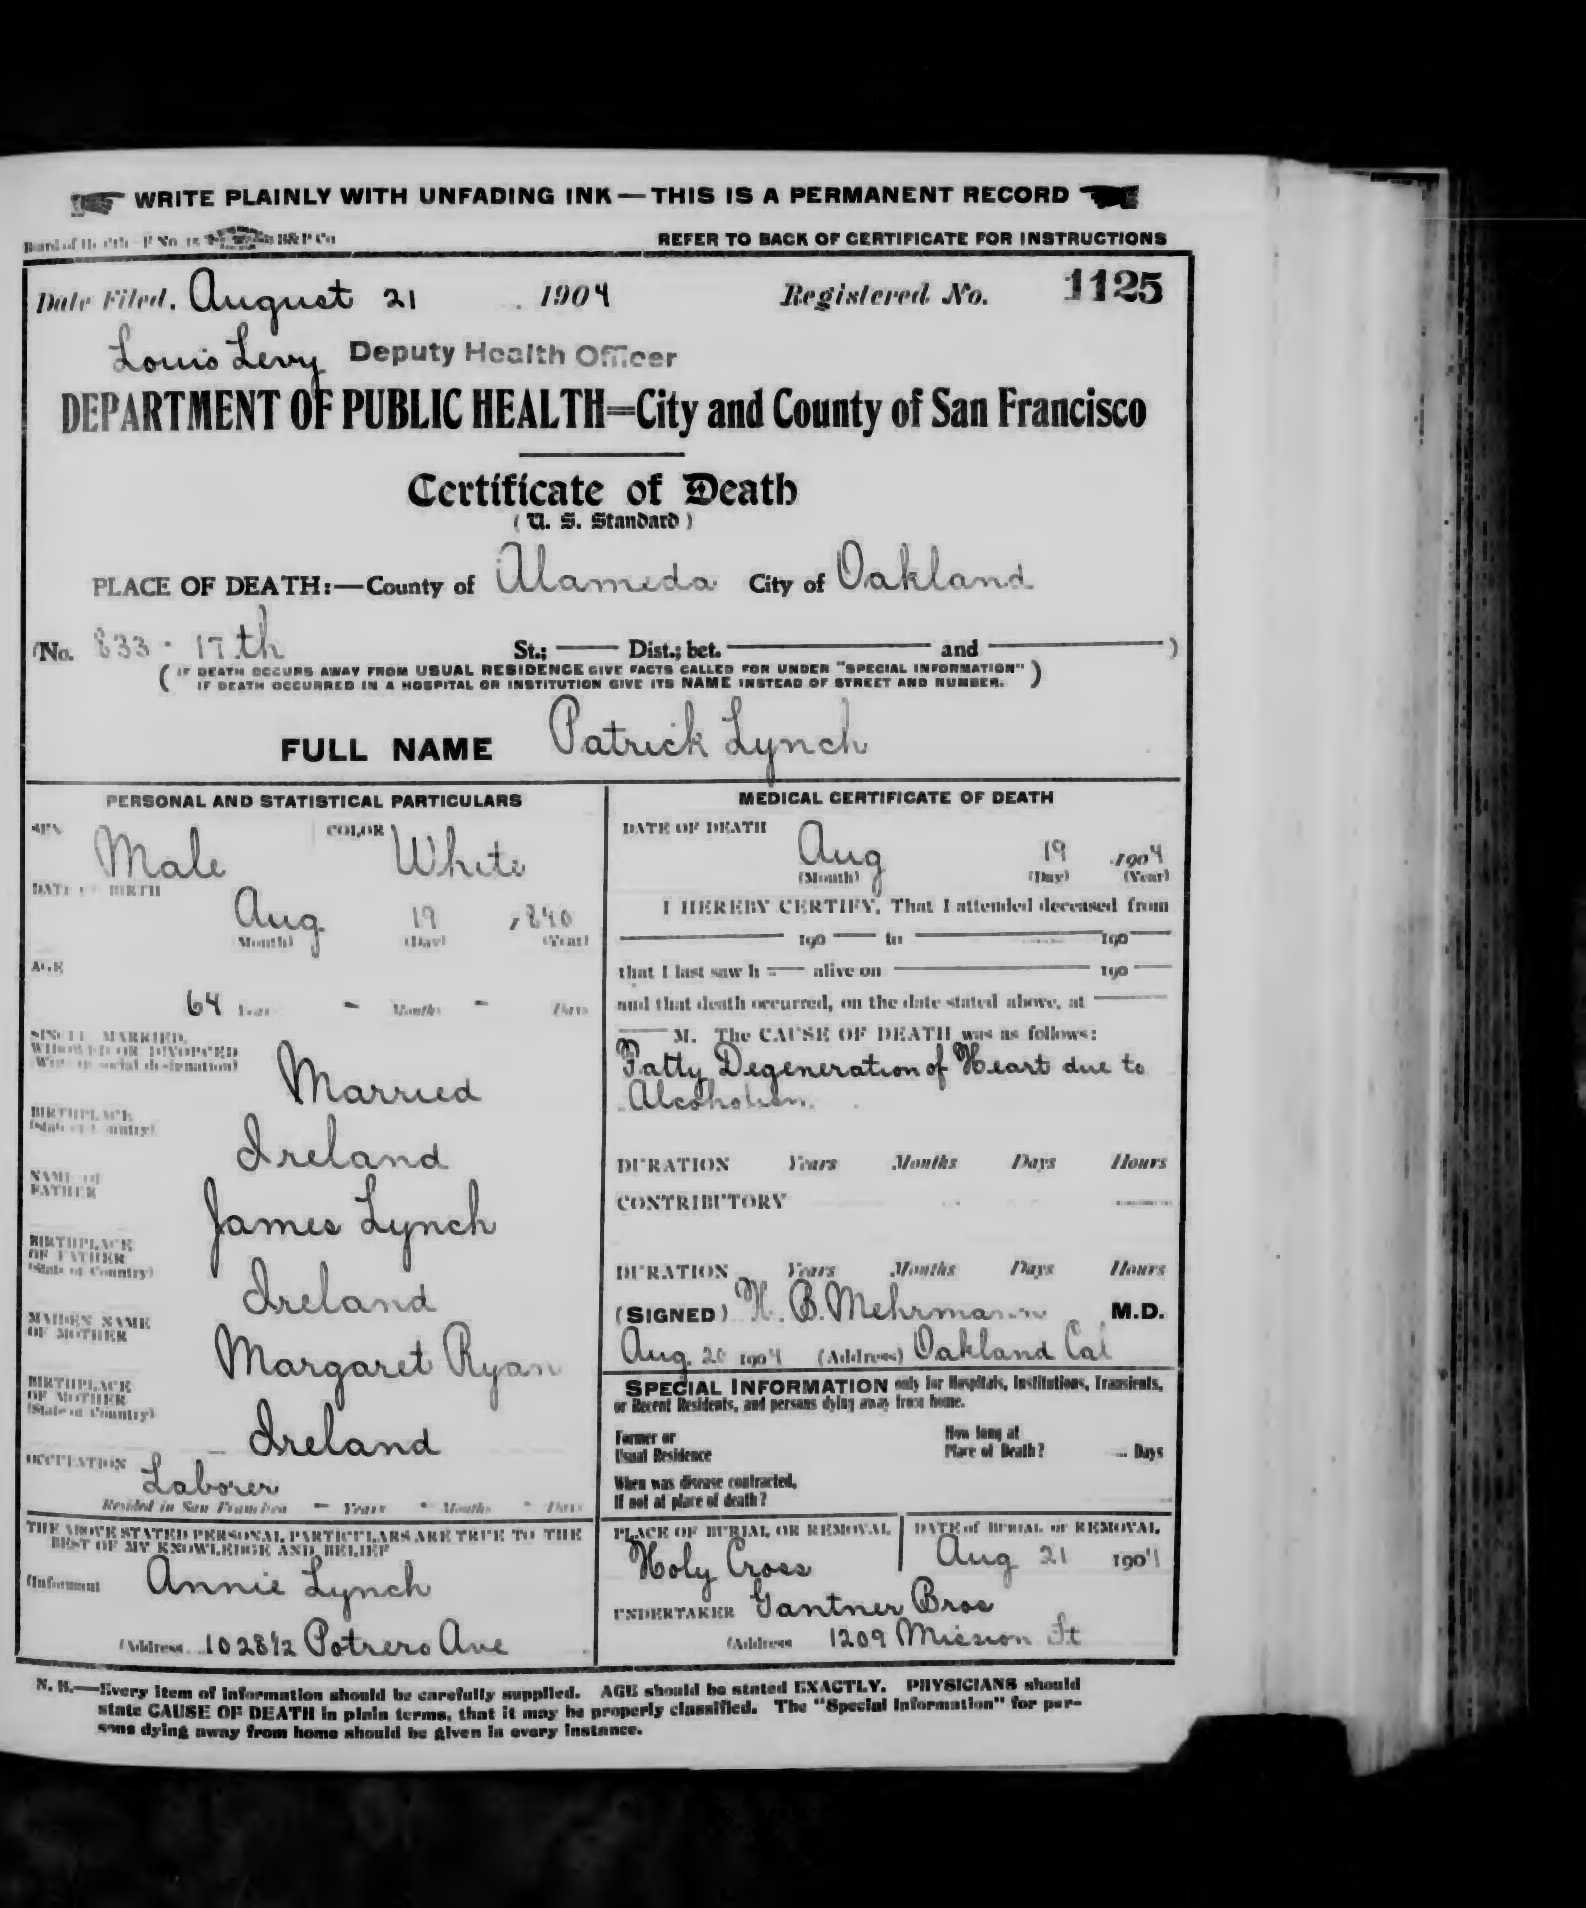 WRITE PLAINLY WITH UNFADING INK — THIS IS A PERMANENT RECORD
Board of Health—F No. 15 H&P Co
REFER TO BACK OF CERTIFICATE FOR INSTRUCTIONS
Date Filed, August 21 1904 Registered No. 1125
Louis Levy Deputy Health Officer
DEPARTMENT OF PUBLIC HEALTH=City and County of San Francisco
Certificate of Death
(U. S. Standard)
PLACE OF DEATH:—County of Alameda City of Oakland
(No. 833 - 17th St.; —— Dist.; bet. —— and ——)
(IF DEATH OCCURS AWAY FROM USUAL RESIDENCE GIVE FACTS CALLED FOR UNDER "SPECIAL INFORMATION"
IF DEATH OCCURRED IN A HOSPITAL OR INSTITUTION GIVE ITS NAME INSTEAD OF STREET AND NUMBER.)
FULL NAME Patrick Lynch
PERSONAL AND STATISTICAL PARTICULARS
SEX Male COLOR White
DATE OF BIRTH
Aug. 19 , 1840
(Month) (Day) (Year)
AGE
64 Years - Months - Days
SINGLE, MARRIED,
WIDOWED OR DIVORCED
(Write in social designation)
Married
BIRTHPLACE
(State or Country)
Ireland
NAME OF
FATHER
James Lynch
BIRTHPLACE
OF FATHER
(State or Country)
Ireland
MAIDEN NAME
OF MOTHER
Margaret Ryan
BIRTHPLACE
OF MOTHER
(State or Country)
Ireland
OCCUPATION
Laborer
Resided in San Francisco - Years - Months - Days
THE ABOVE STATED PERSONAL PARTICULARS ARE TRUE TO THE
BEST OF MY KNOWLEDGE AND BELIEF
(Informant Annie Lynch
(Address 1028½ Potrero Ave
MEDICAL CERTIFICATE OF DEATH
DATE OF DEATH
Aug 19 , 1904
(Month) (Day) (Year)
I HEREBY CERTIFY, That I attended deceased from
—— 190 —— to —— 190 ——
that I last saw h —— alive on —— 190 ——
and that death occurred, on the date stated above, at ——
—— M. The CAUSE OF DEATH was as follows:
Fatty Degeneration of Heart due to
Alcoholism.
DURATION Years Months Days Hours
CONTRIBUTORY
DURATION Years Months Days Hours
(SIGNED) H. B. Mehrmann M.D.
Aug. 20 1904 (Address) Oakland Cal
SPECIAL INFORMATION only for Hospitals, Institutions, Transients,
or Recent Residents, and persons dying away from home.
Former or
Usual Residence
How long at
Place of Death? Days
When was disease contracted,
If not at place of death?
PLACE OF BURIAL OR REMOVAL
Holy Cross
DATE of BURIAL or REMOVAL
Aug 21 1904
UNDERTAKER Gantner Bros
(Address 1209 Mission St
N. B.—Every item of information should be carefully supplied. AGE should be stated EXACTLY. PHYSICIANS should
state CAUSE OF DEATH in plain terms, that it may be properly classified. The "Special Information" for per-
sons dying away from home should be given in every instance.